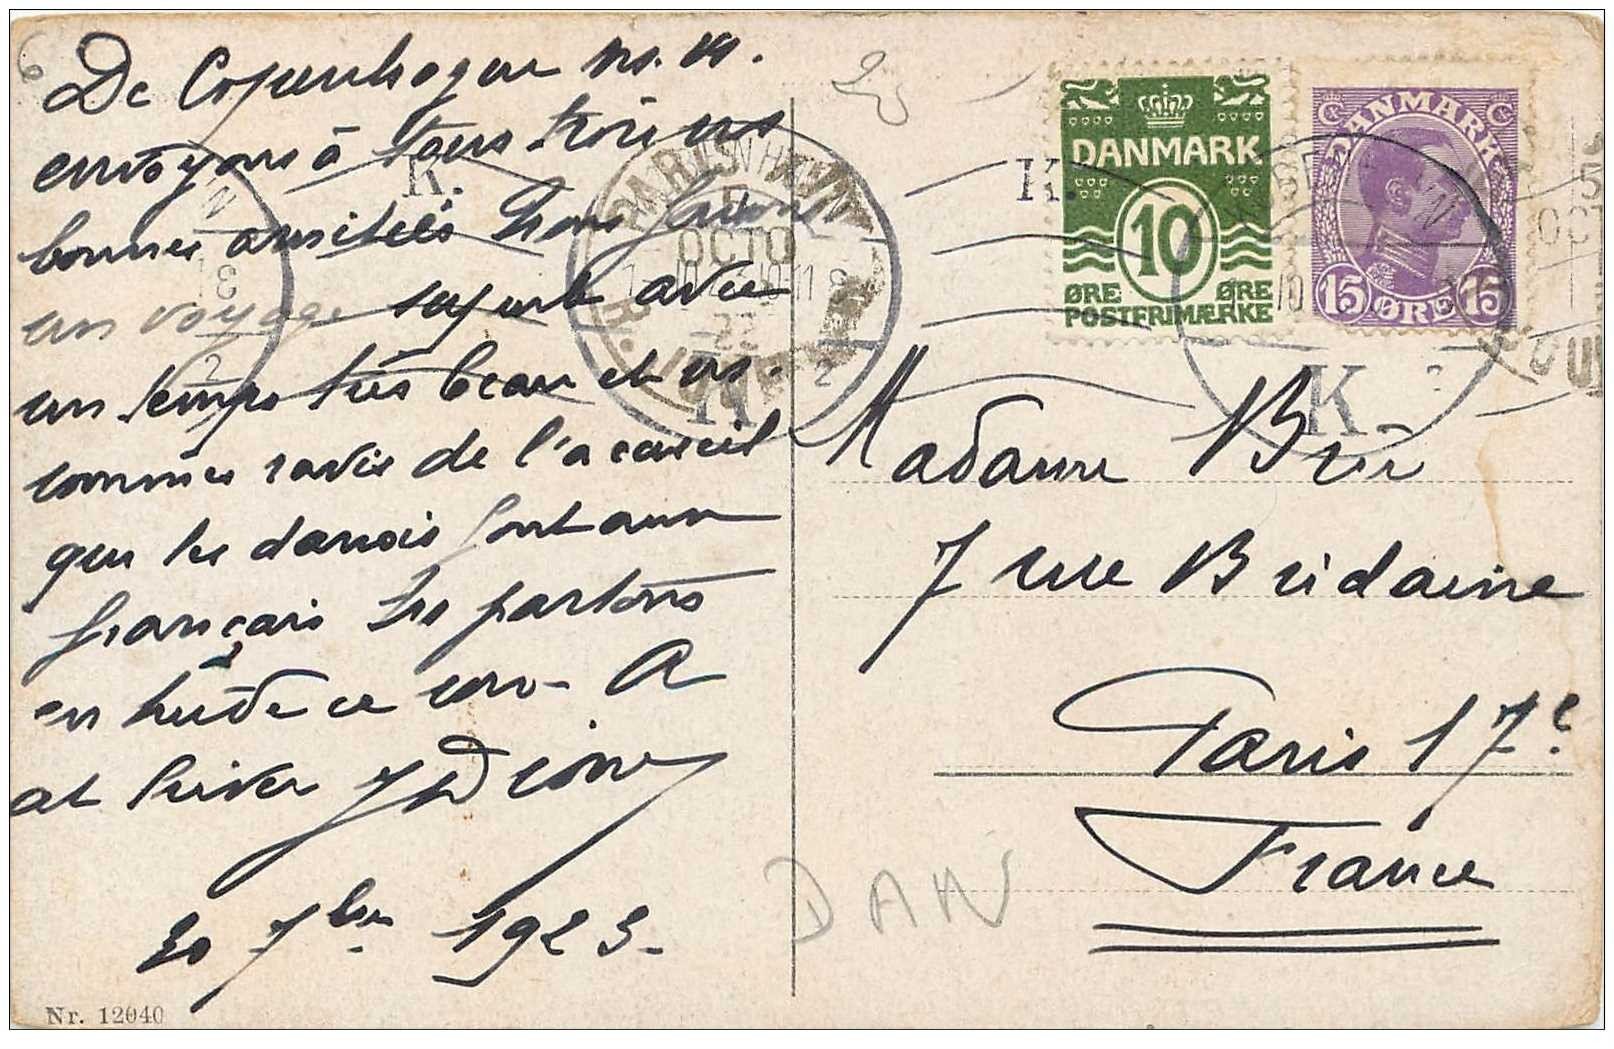 De Copenhague ns. vs.
envoyons à tous trois nos
bonnes amitiés Nous faisons
un voyage superbe avec
un temps très beau et ns.
sommes ravis de l'accueil
que les danois font aux
français
en ce
at
30 7bre 1923.
Nr. 12040
DANMARK
10
ØRE ØRE
POSTFRIMÆRKE
DANMARK
15 ØRE 15
K.
K.
K
PARIS
OCT
Madame
7 rue Bridaine
Paris 17e
France
DAN